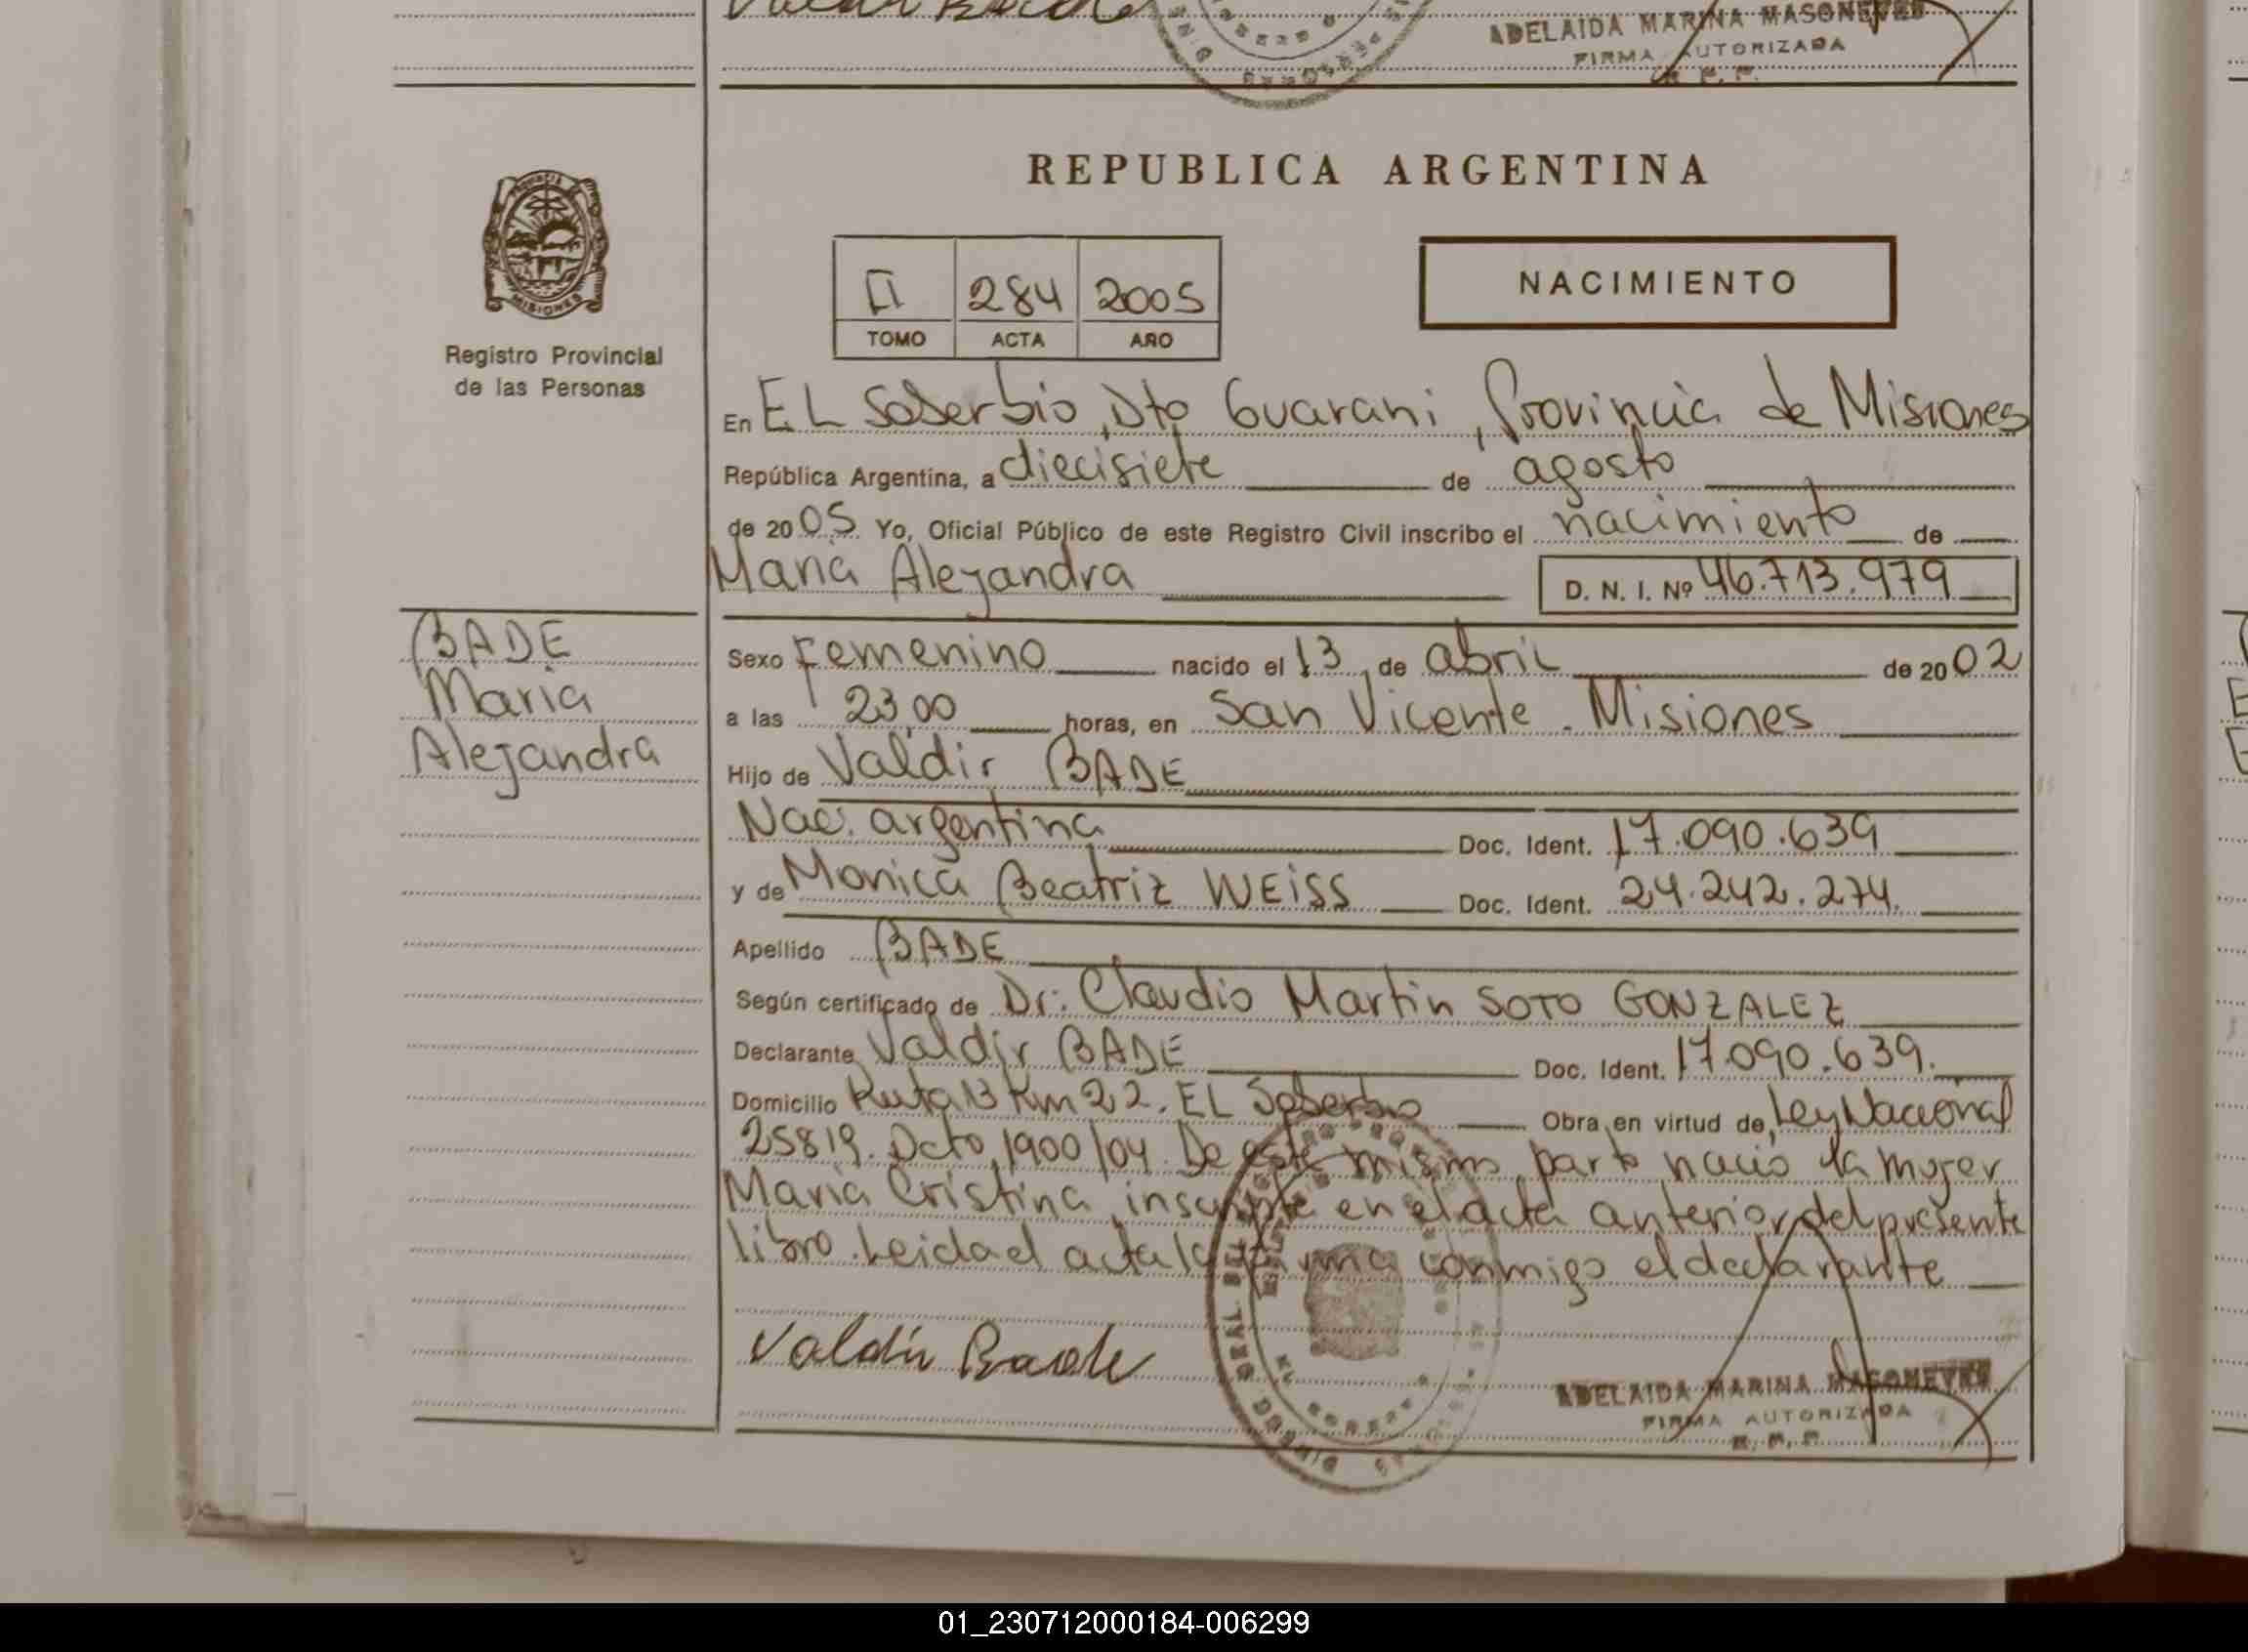 Valdir Bade
ADELAIDA MARINA MASONEVES
FIRMA AUTORIZADA
R. P. P.
REPUBLICA ARGENTINA
MISIONES
Registro Provincial
de las Personas
II 284 2005
TOMO ACTA AÑO
NACIMIENTO
En EL Soberbio, Dto Guarani, Provincia de Misiones
República Argentina, a diecisiete de agosto
de 2005 Yo, Oficial Público de este Registro Civil inscribo el nacimiento de
Maria Alejandra D. N. I. Nº 46.713.979
BADE
Maria
Alejandra
Sexo Femenino nacido el 13 de abril de 2002
a las 23,00 horas, en San Vicente. Misiones
Hijo de Valdir BADE
Nac. argentina Doc. Ident. 17.090.639
y de Monica Beatriz WEISS Doc. Ident. 24.242.274.
Apellido BADE
Según certificado de Dr: Claudio Martin SOTO GONZALEZ
Declarante Valdir BADE Doc. Ident. 17.090.639.
Domicilio Ruta 13 Km 22. EL Soberbio Obra en virtud de Ley Nacional
25819. Dcto, 1900/04. De este mismo parto nacio la mujer
Maria Cristina, inscripta en el acta anterior del presente
libro. Leida el acta la firma conmigo el declarante
Valdir Bade
ADELAIDA MARINA MASONEVES
FIRMA AUTORIZADA
R. P. P.
01_230712000184-006299